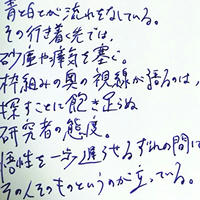 青と白とが流れをなしている。
その行き着く先では、
砂塵や瘴気を塞ぐ。
枠組みの奥の視線が語るのは、
探すことに飽き足らぬ
研究者の態度。
悟性を一歩遅らせるずれの間に
その人そのものというのが立っている。